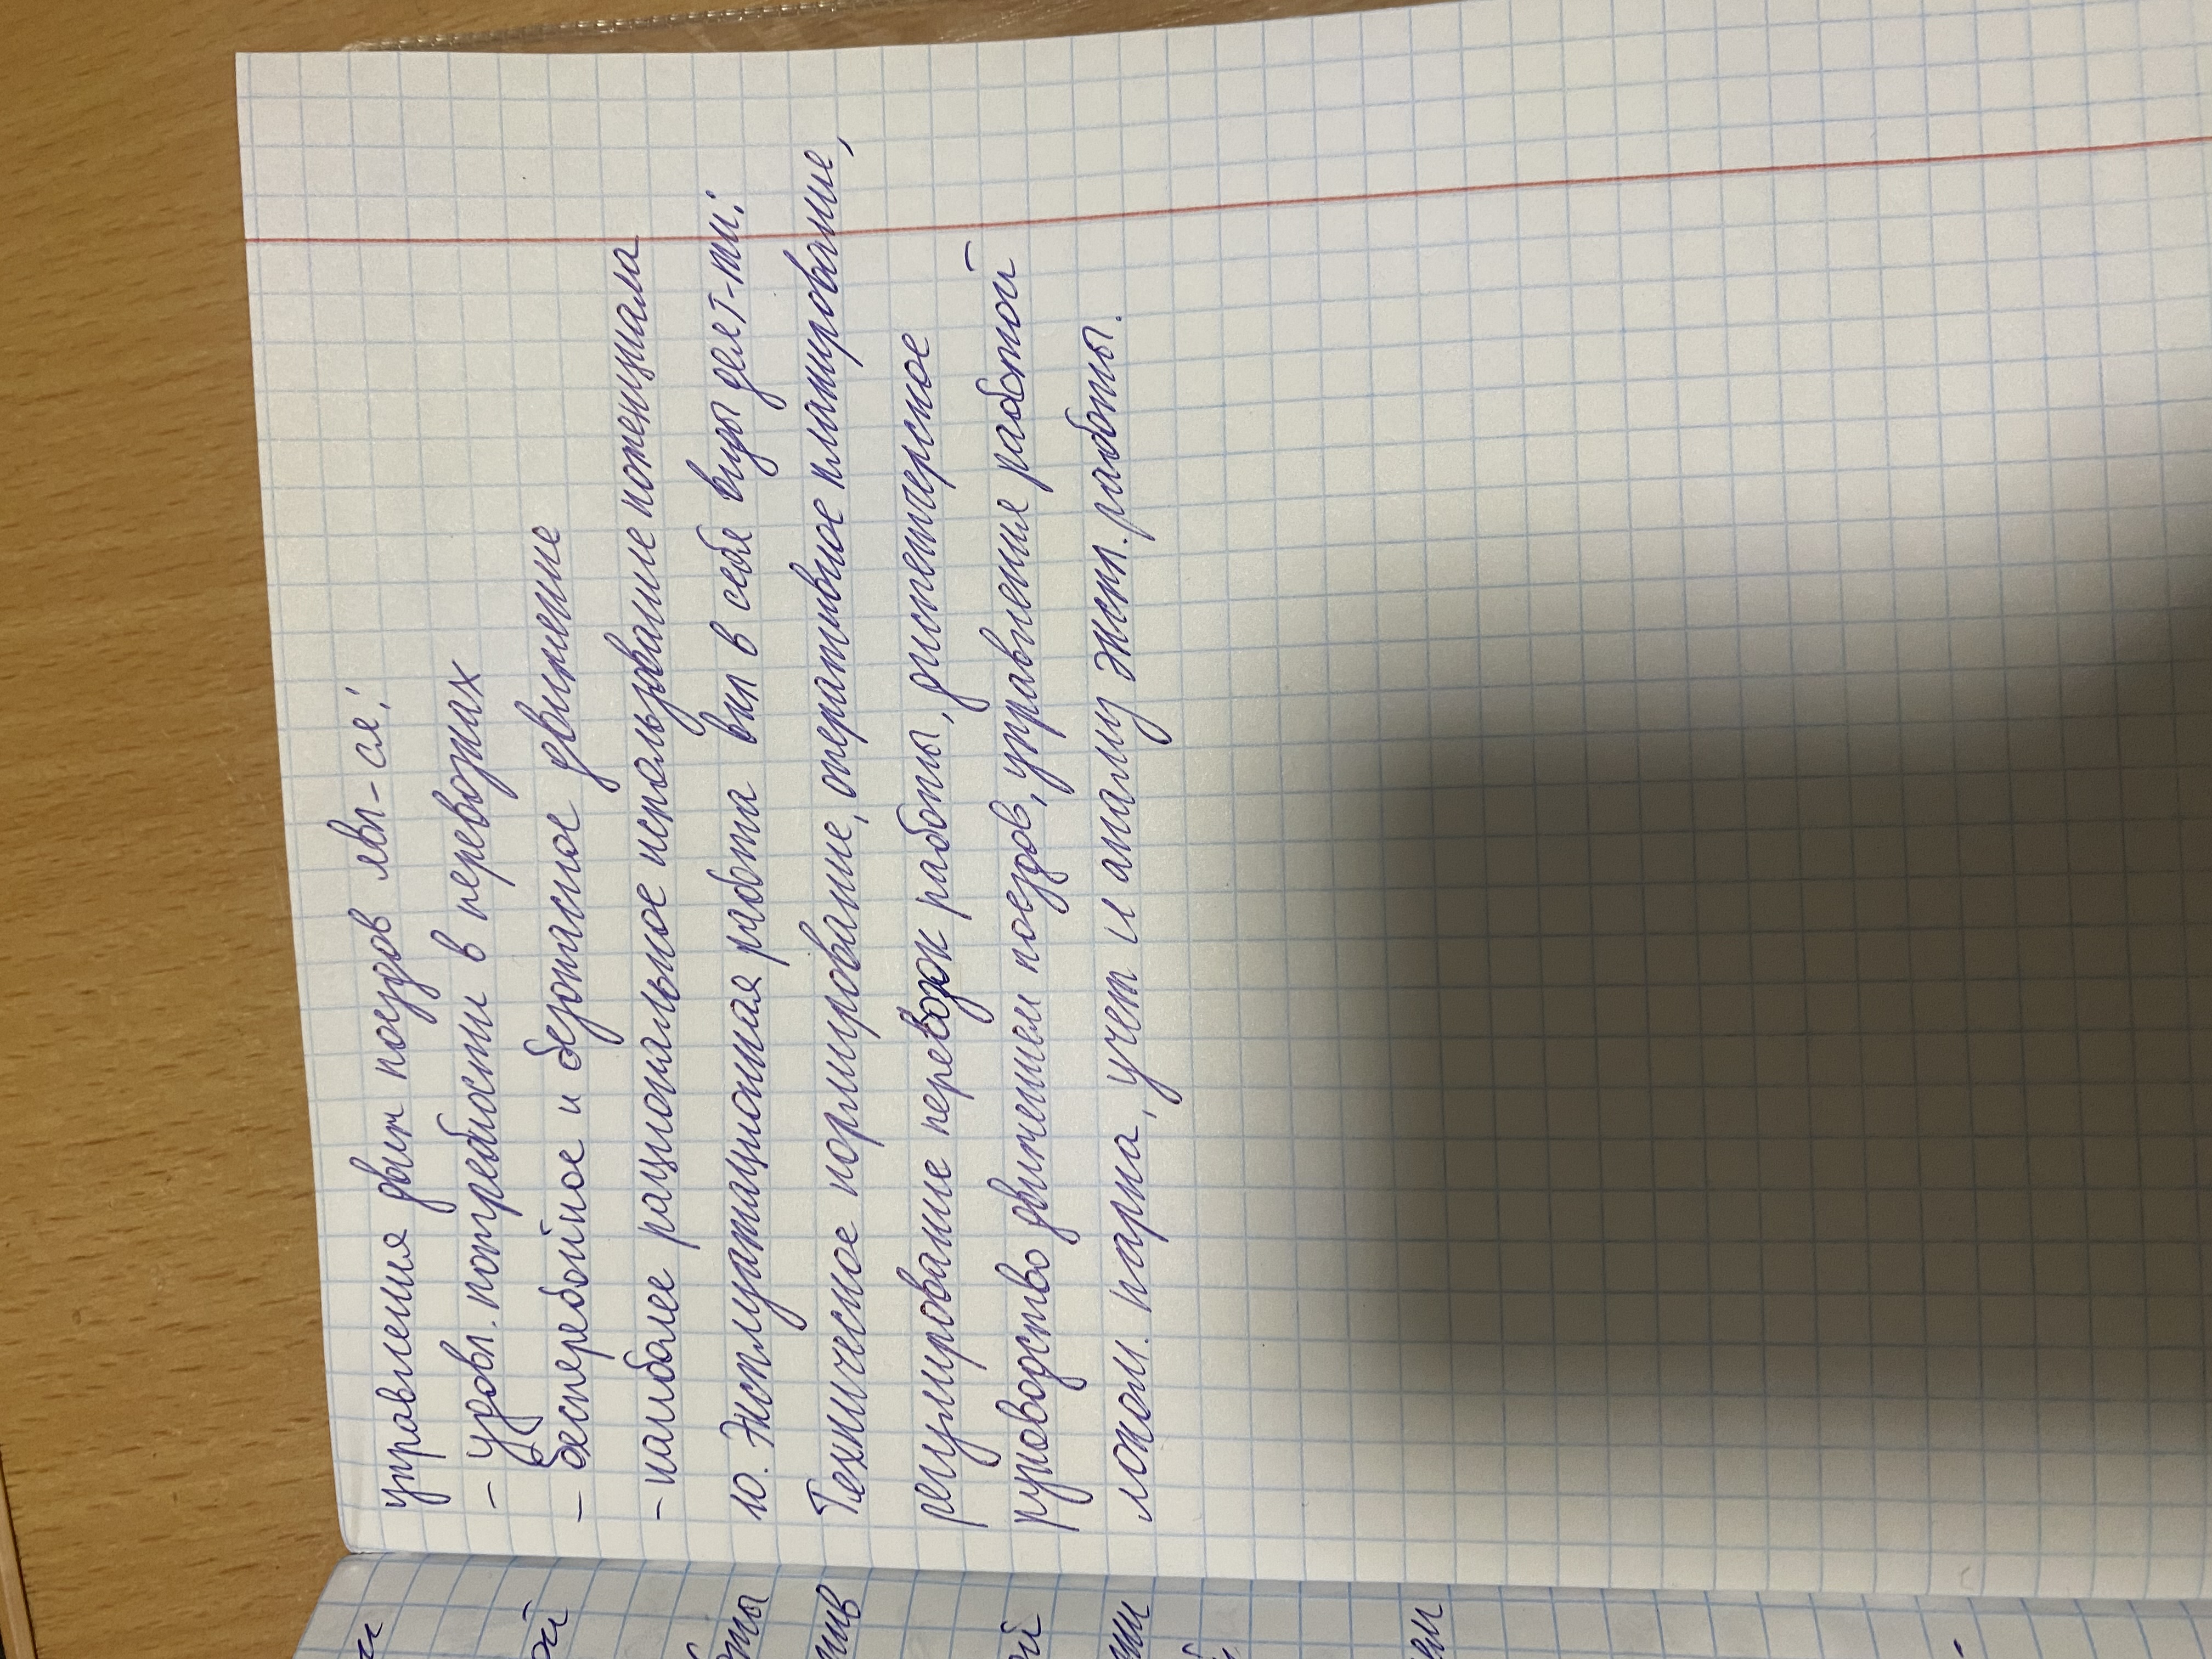 управления движ поездов явл-ся:
- удовл. потребности в перевозках
- бесперебойное и безопасное движение
- наиболее рациональное использование потенциала
10. Эксплуатационная работа вкл в себя виды деят-ти:
Техническое нормирование, оперативное планирование,
регулирование перевозок работы, диспетчерское
руководство движением поездов, управления работой
локом. парка, учет и анализ экспл. работы.